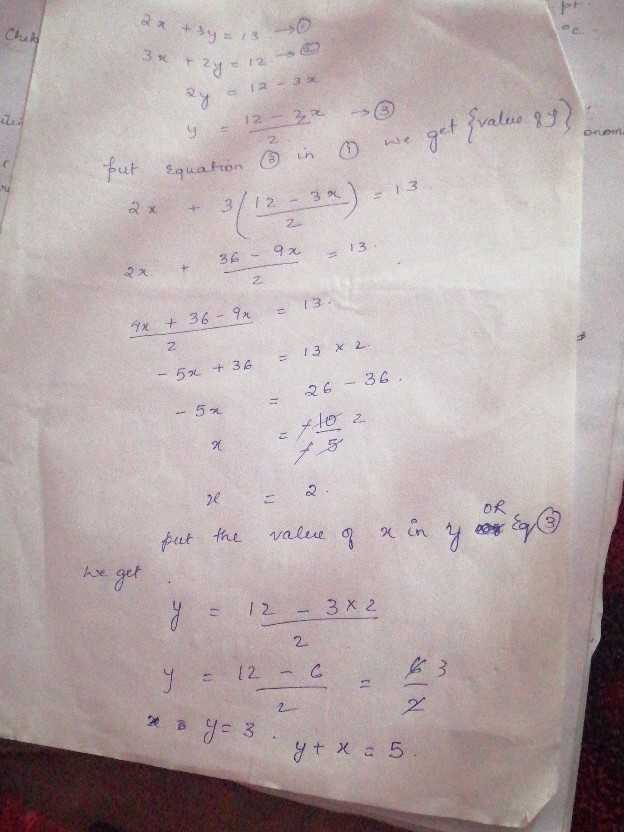 2x + 3y = 13 → ①
3x + 2y = 12 → ②
2y = 12 - 3x
y = (12 - 3x)/2 → ③
put Equation ③ in ① we get {value of y}
2x + 3((12 - 3x)/2) = 13
2x + (36 - 9x)/2 = 13.
(4x + 36 - 9x)/2 = 13.
-5x + 36 = 13 × 2.
-5x = 26 - 36.
x = -10/-5 2
x = 2.
put the value of x in y OR Eq ③
we get
y = (12 - 3×2)/2
y = (12 - 6)/2 = 6/2 3
y = 3.
y + x = 5.
Chek
pt.
°C